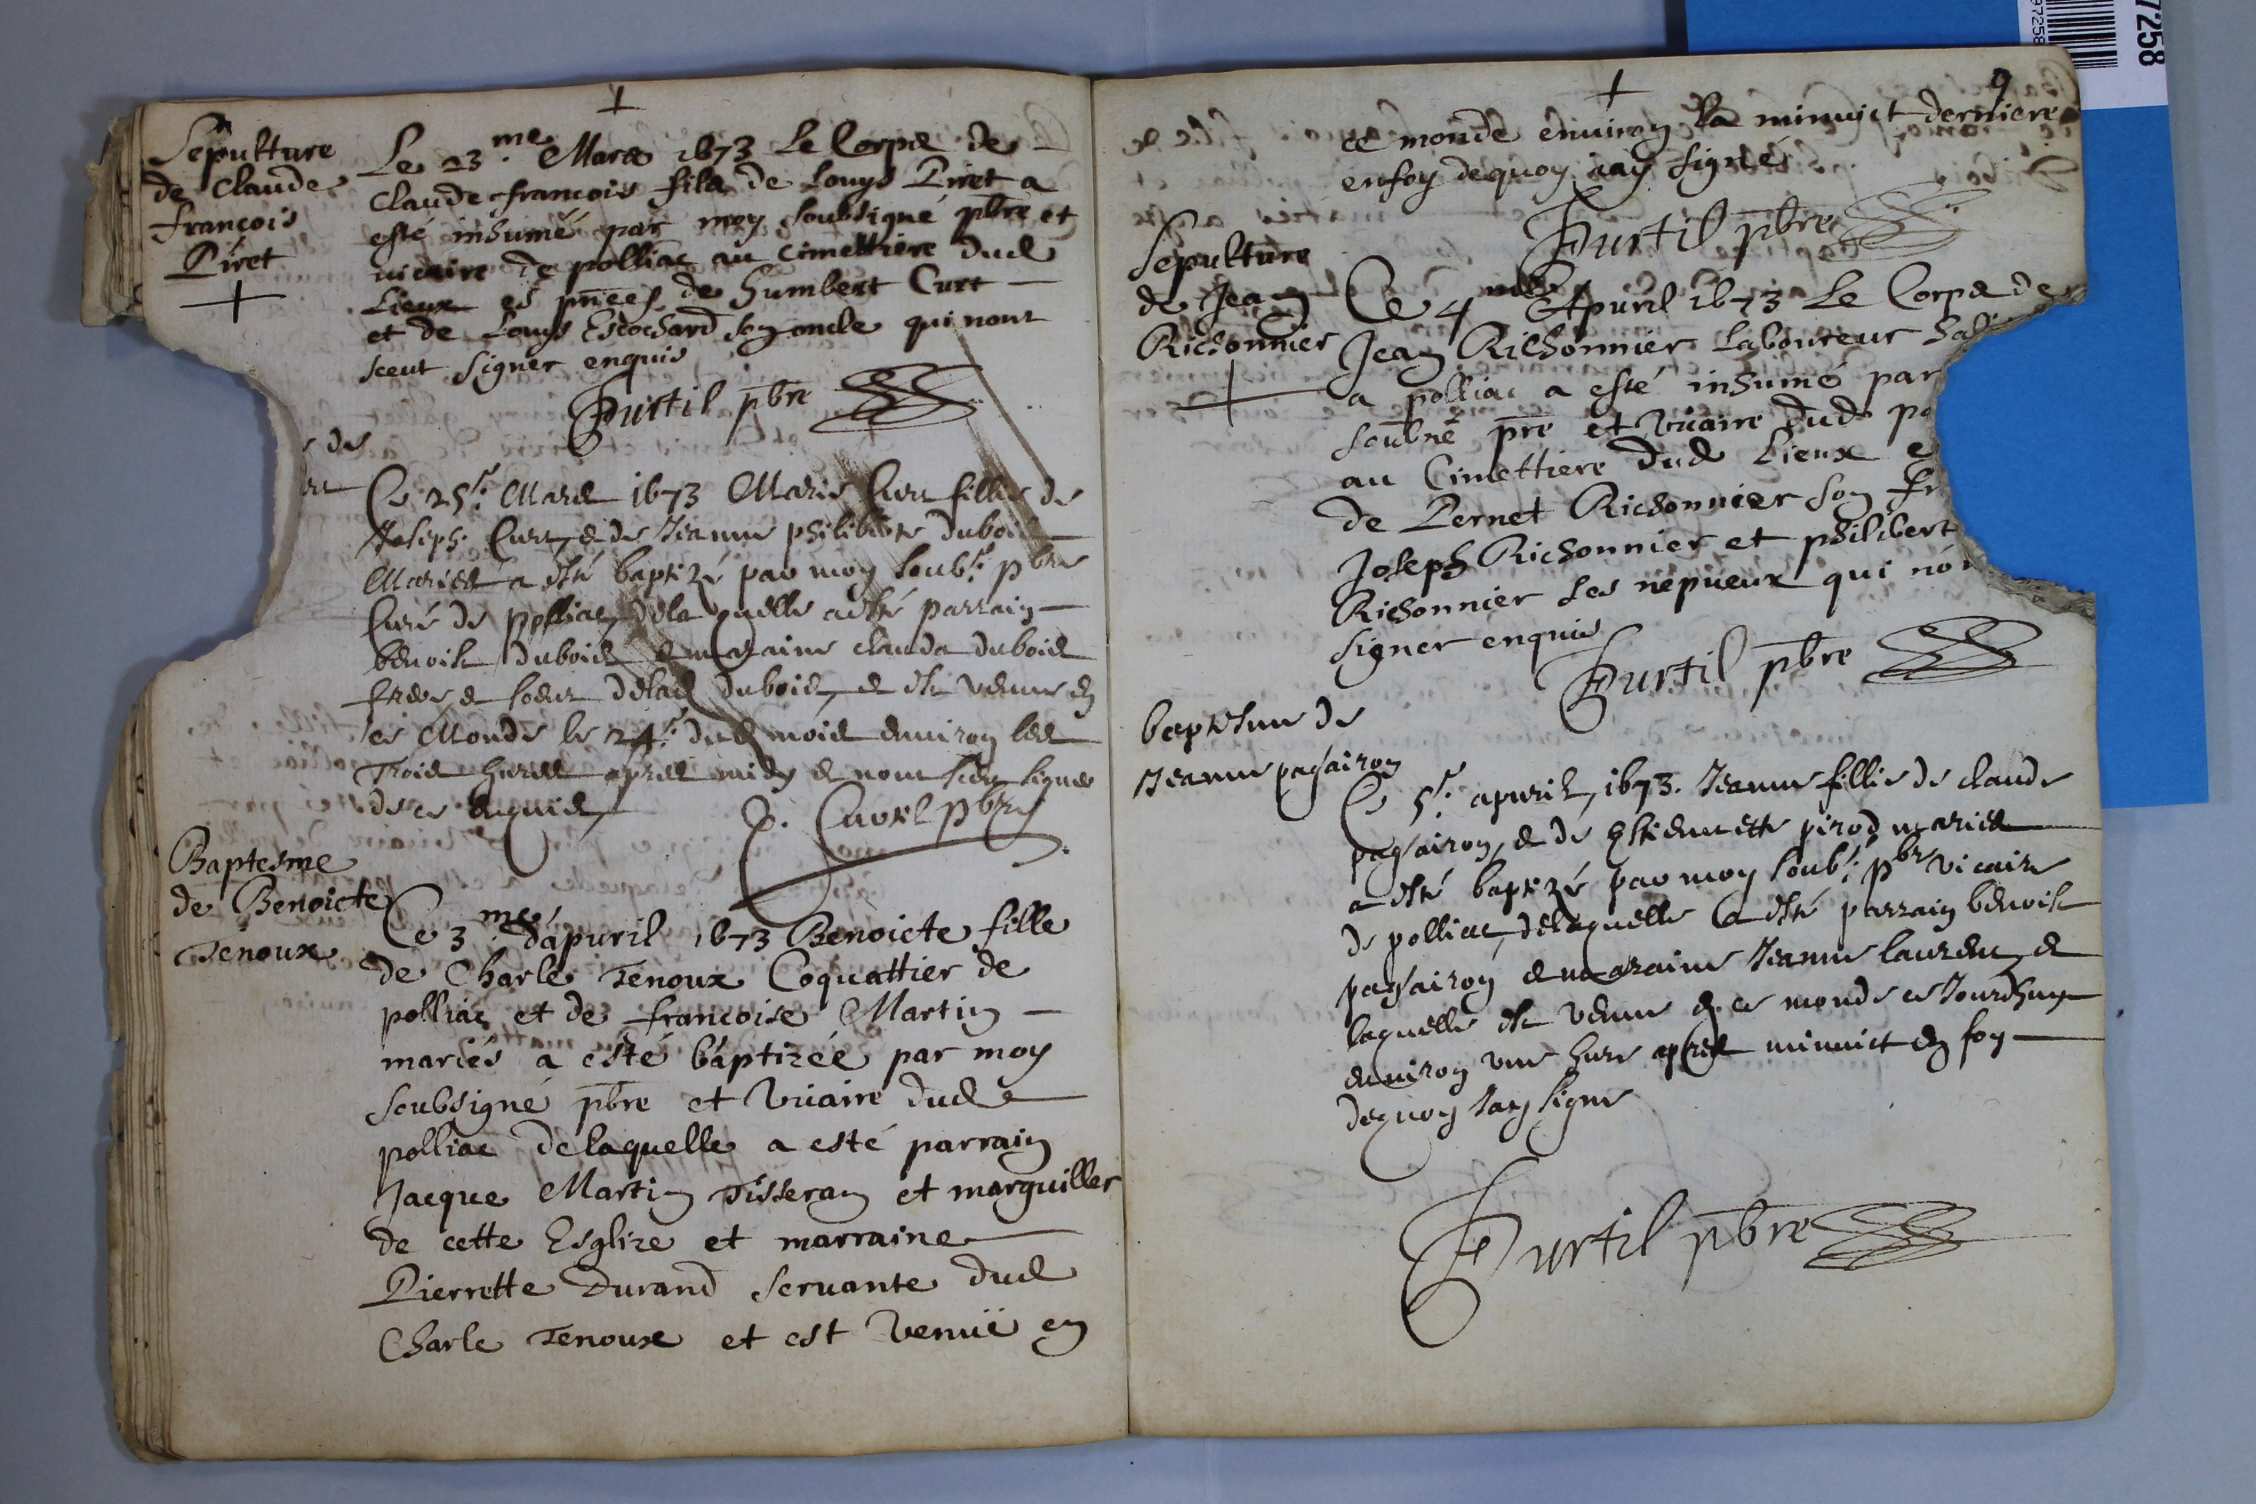 Sepulture
de Claude
françois
Piret
Le 23.me Mars 1673 Le Corps de
Claude francois fils de Louys Piret a
esté inhumé par moy soubsigné pbre et
vicaire de polliac au cimettiere dud
Lieux es pnces de humbert Curt
et de Louys Escochard son oncle qui nont
sceut signer enquis
Furtil pbre
Ce 25.e Mars 1673 Marie Curt fillie de
Joseph Curt, & de Jeanne philiberte duboi
Mariés a esté baptizé par moy soub.é pbre
Curé de polliac, dela quelle a esté parrain
benoist dubois & maraine clauda dubois
frere & soeur delad dubois, & est venue en
ce Monde le 24.e dud mois environ les
Trois heures apres midy & nont sceu signer
de ce enquis
Baptesme
de Benoicte
Tenoux
Ce 3.me d'apuril 1673 Benoicte fille
de Charle Tenoux Coquattier de
polliac et de francoise Martin
mariés a esté baptizée par moy
soubsigné pbre et vicaire dud
polliac delaquelle a esté parrain
Jacque Martin Tisseran et marguiller
de cette Esglize et marraine
Pierrette Durand servante dud
Charle Tenoux et est venüe en
9
ce monde environ la minuict derniere
enfoy dequoy iay signé
Furtil pbre
Sepulture
de Jean
Richonnier
Ce 4.me Apuril 1673 Le Corps de
Jean Richonnier Laboureur ha
a polliac a esté inhumé par
soubné pre et vicaire dud po
au Cimettiere dud Lieux e
de Pernet Richonnier son fr
Joseph Richonnier et philibert
Richonnier ses nepueux qui no
signer enquis
Furtil pbre
baptesme de
Jeanne pagairon
Ce 5.e apuril, 1673. Jeanne fillie de claude
pagairon, & de Estiennette pirod mariés
a esté baptizé par moy soub.é pbre vicaire
de polliac, delaquelle a esté parrain benoist
pagairon & maraine Jeanne laurent, &
laquelle est venue en ce monde ce Jourdhuy
environ une heure apres minuict en foy
dequoy Jay signe
Furtil pbre